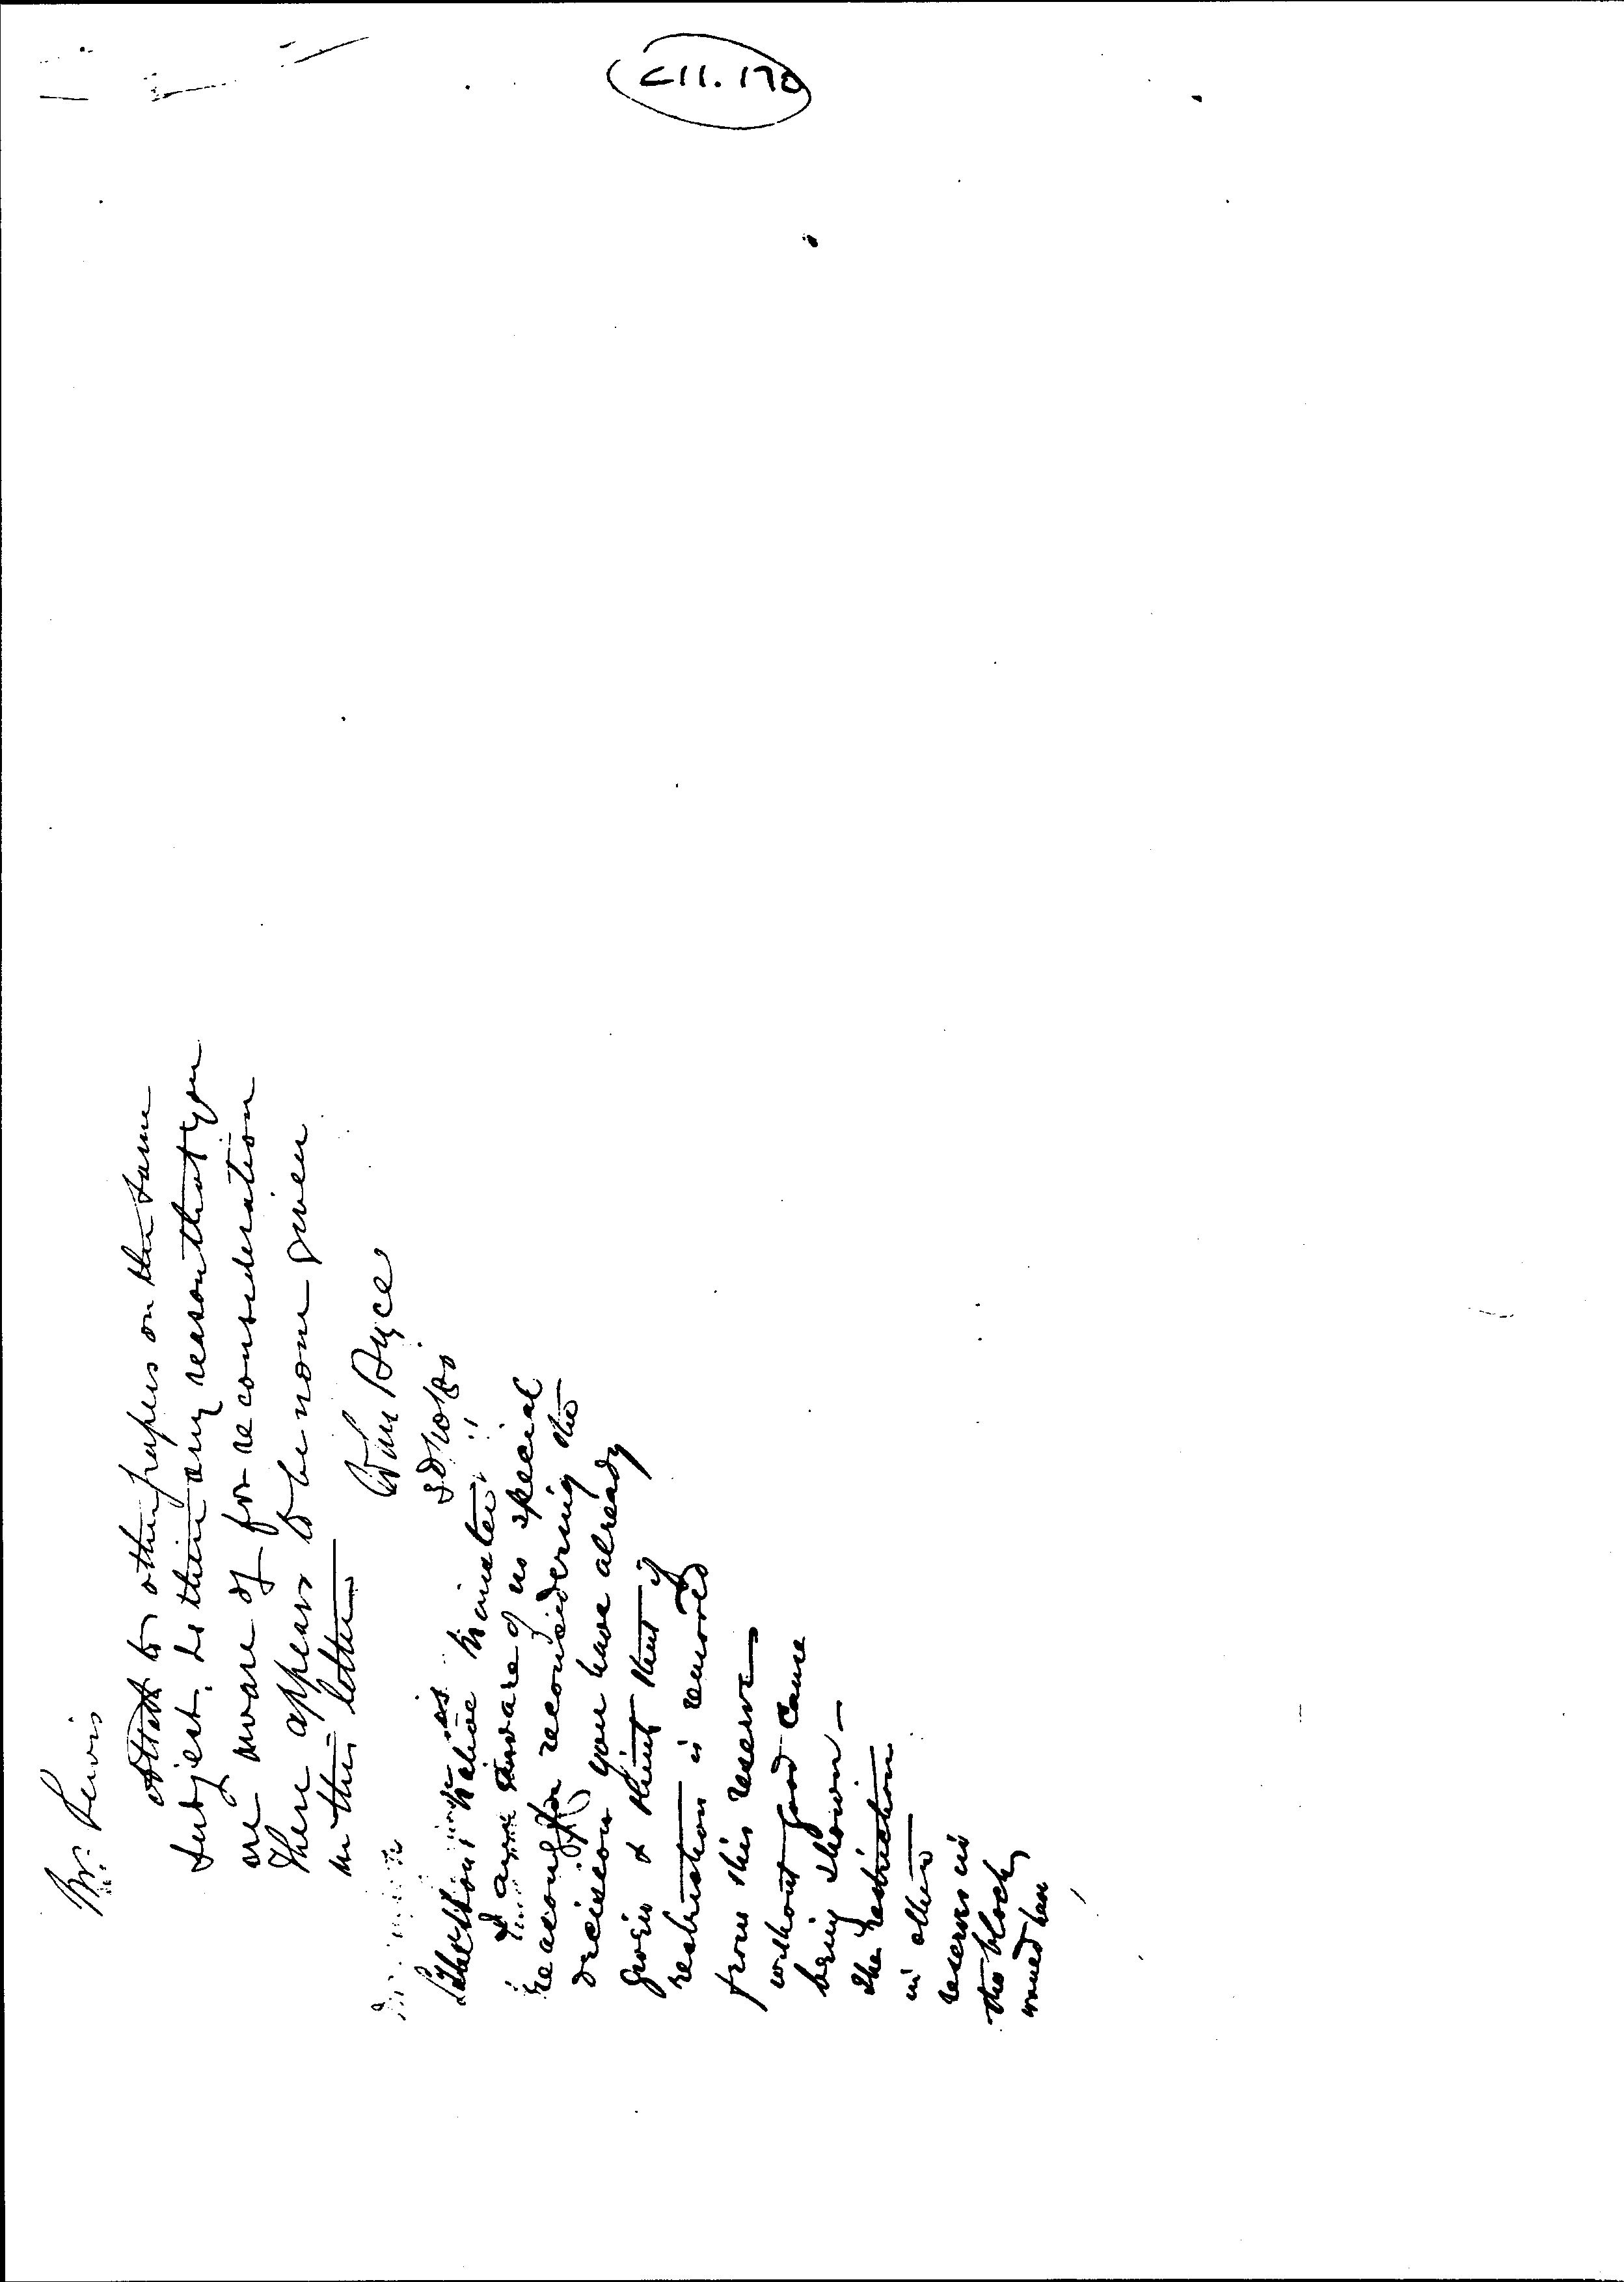 C11.170
Mr. Lewis
Attach to other papers on the same
subject. Is there any reason that you
are aware of for reconsideration
There appears to be none given
in this letter
Wm Buce
The Hon. Native Minister
I am aware of no special
reasons for reconsidering the
decision you have already
given & think that if
restriction is removed
from this reserve
without good cause
being shown –
the restriction
in other
reserves in
the block
would have